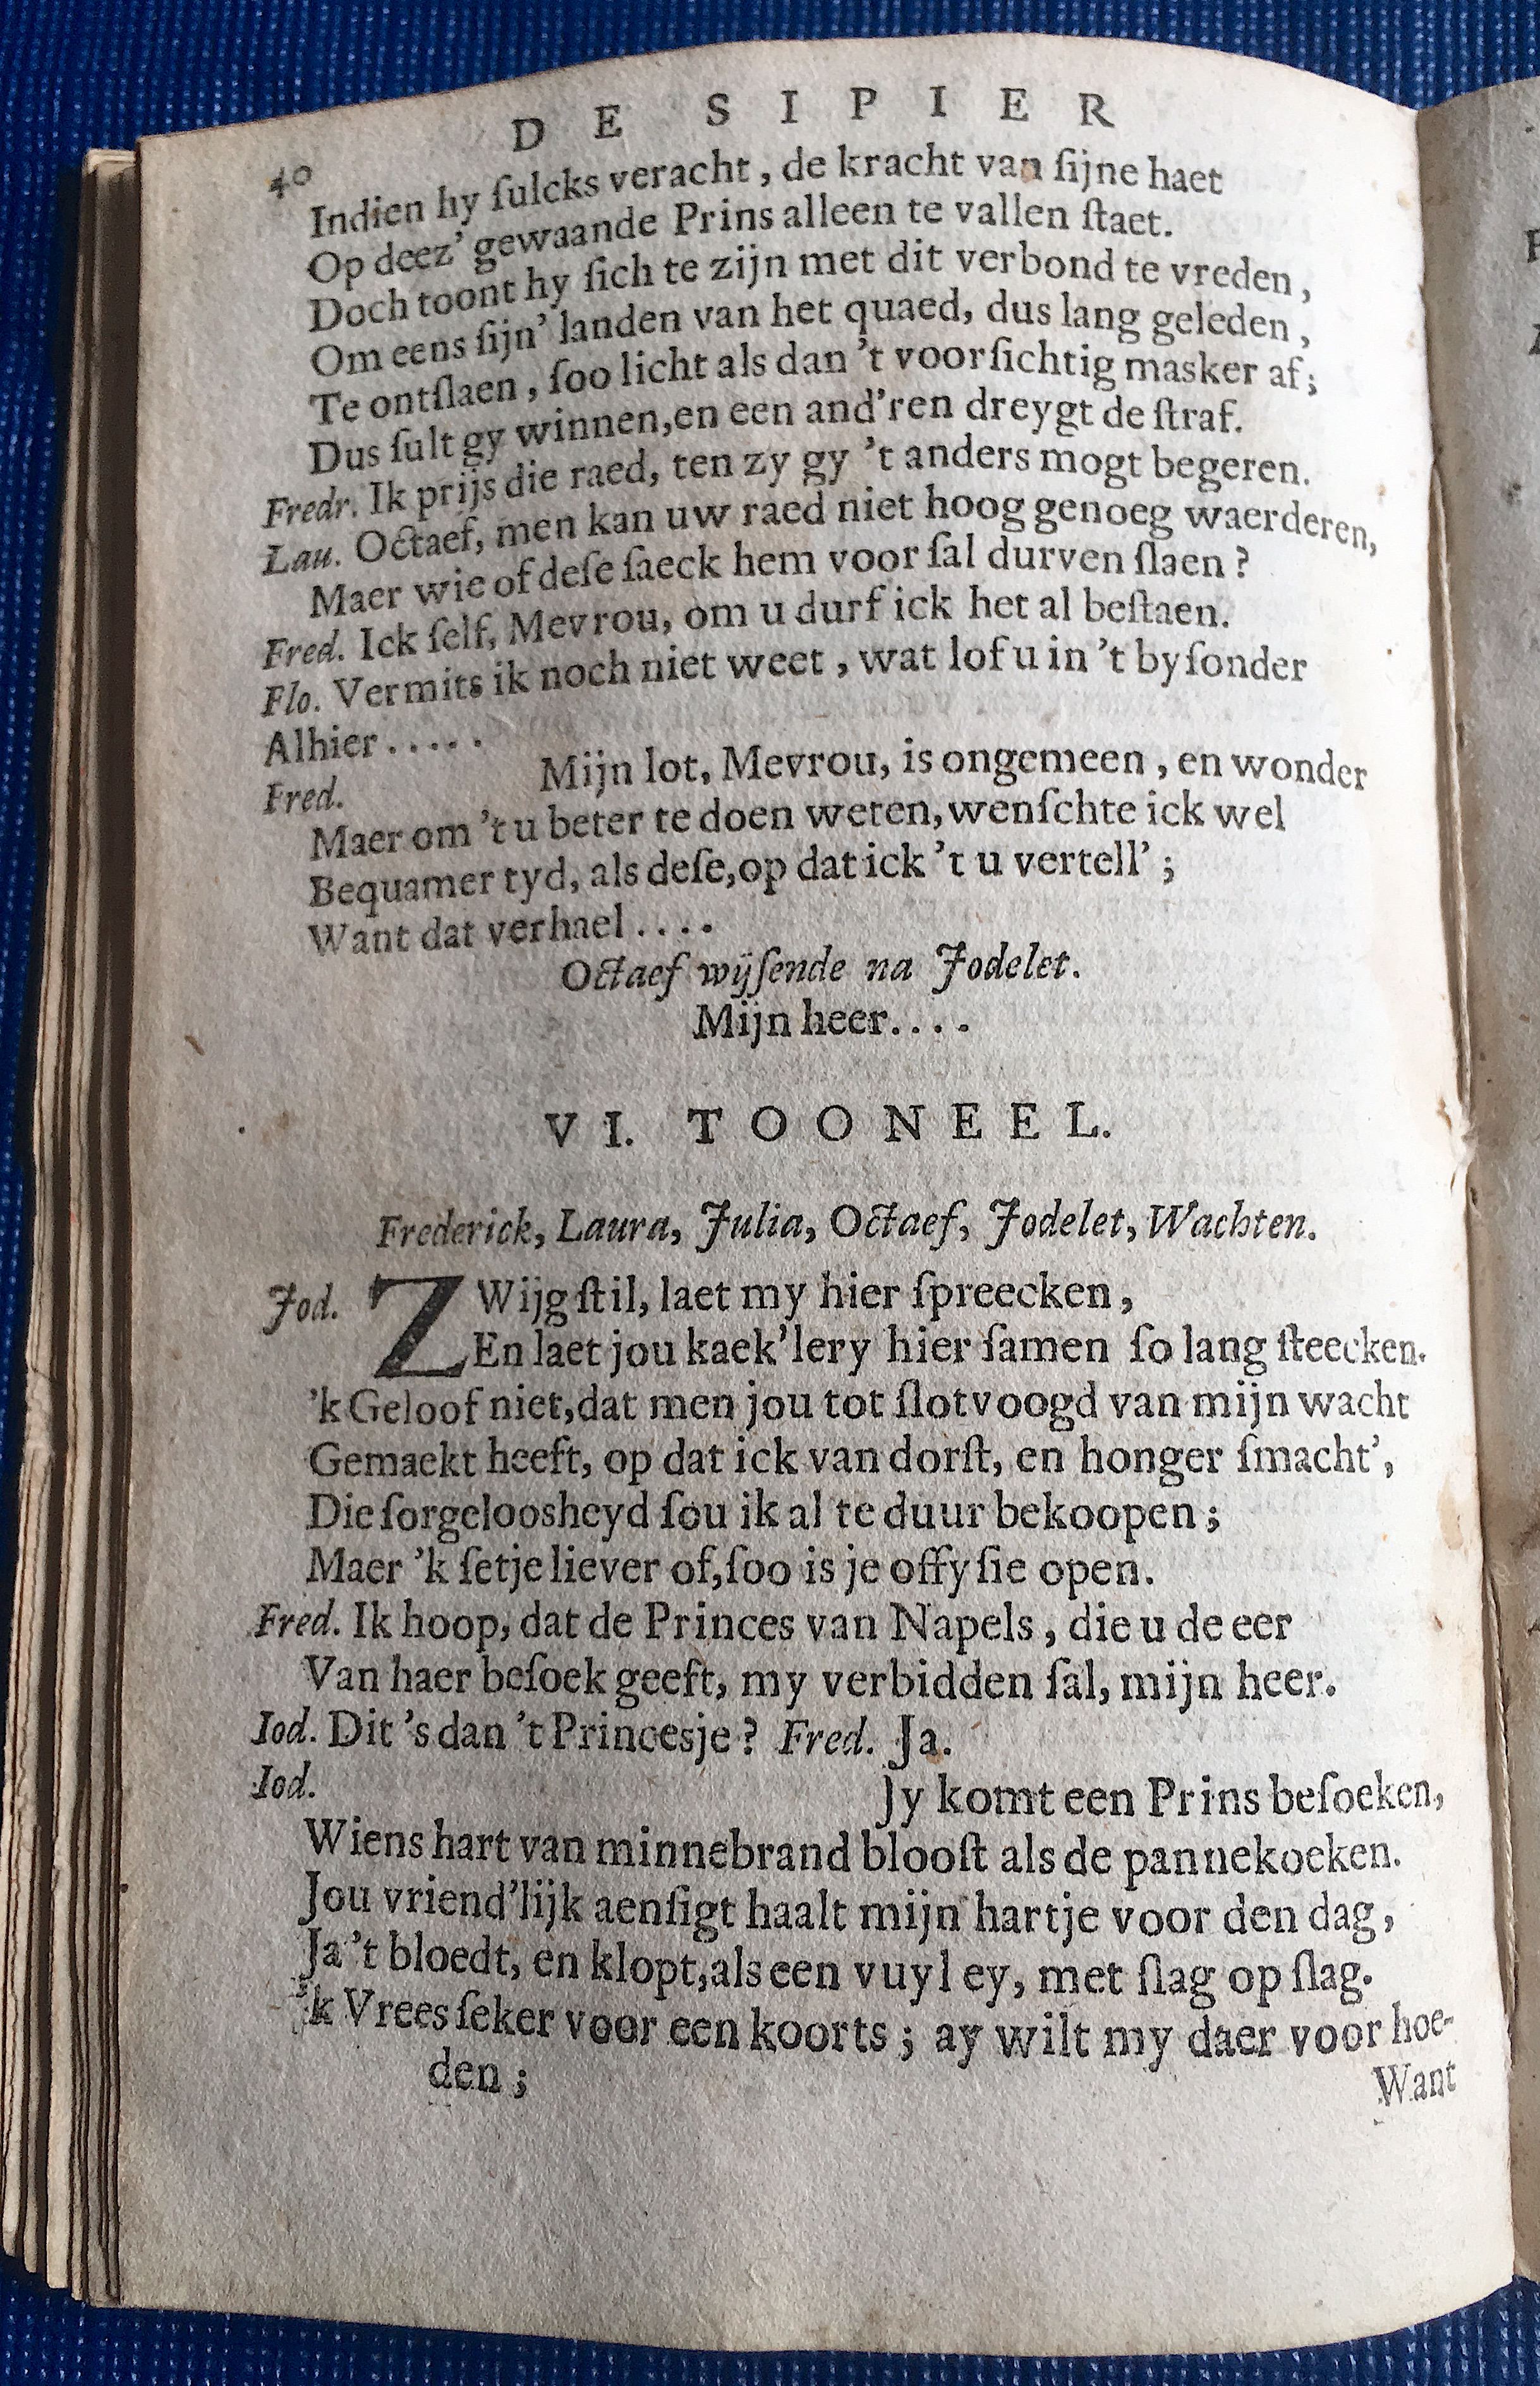 40
DE SIPIER
Indien hy ſulcks veracht, de kracht van ſijne haet
Op deez' gewaande Prins alleen te vallen ſtaet.
Doch toont hy ſich te zijn met dit verbond te vreden,
Om eens ſijn' landen van het quaed, dus lang geleden,
Te ontſlaen, ſoo licht als dan 't voorſichtig masker af;
Dus ſult gy winnen, en een and'ren dreygt de ſtraf.
Fredr. Ik prijs die raed, ten zy gy 't anders mogt begeren.
Lau. Octaef, men kan uw raed niet hoog genoeg waerderen,
Maer wie of deſe ſaeck hem voor ſal durven ſlaen?
Fred. Ick ſelf, Mevrou, om u durf ick het al beſtaen.
Flo. Vermits ik noch niet weet, wat lof u in 't byſonder
Alhier.....
Fred. Mijn lot, Mevrou, is ongemeen, en wonder
Maer om 't u beter te doen weten, wenſchte ick wel
Bequamer tyd, als deſe, op dat ick 't u vertell';
Want dat verhael....
Octaef wijſende na Jodelet.
Mijn heer....
VI. TOONEEL.
Frederick, Laura, Julia, Octaef, Jodelet, Wachten.
Jod. ZWijg ſtil, laet my hier ſpreecken,
En laet jou kaek'lery hier ſamen ſo lang ſteecken.
'k Geloof niet, dat men jou tot ſlotvoogd van mijn wacht
Gemaekt heeft, op dat ick van dorſt, en honger ſmacht',
Die ſorgeloosheyd ſou ik al te duur bekoopen;
Maer 'k ſetje liever of, ſoo is je offyſie open.
Fred. Ik hoop, dat de Princes van Napels, die u de eer
Van haer beſoek geeft, my verbidden ſal, mijn heer.
Iod. Dit 's dan 't Princesje? Fred. Ja.
Iod. Jy komt een Prins beſoeken,
Wiens hart van minnebrand blooſt als de pannekoeken.
Jou vriend'lijk aenſigt haalt mijn hartje voor den dag,
Ja 't bloedt, en klopt, als een vuyl ey, met ſlag op ſlag.
'k Vrees ſeker voor een koorts; ay wilt my daer voor hoe-
den;
Want